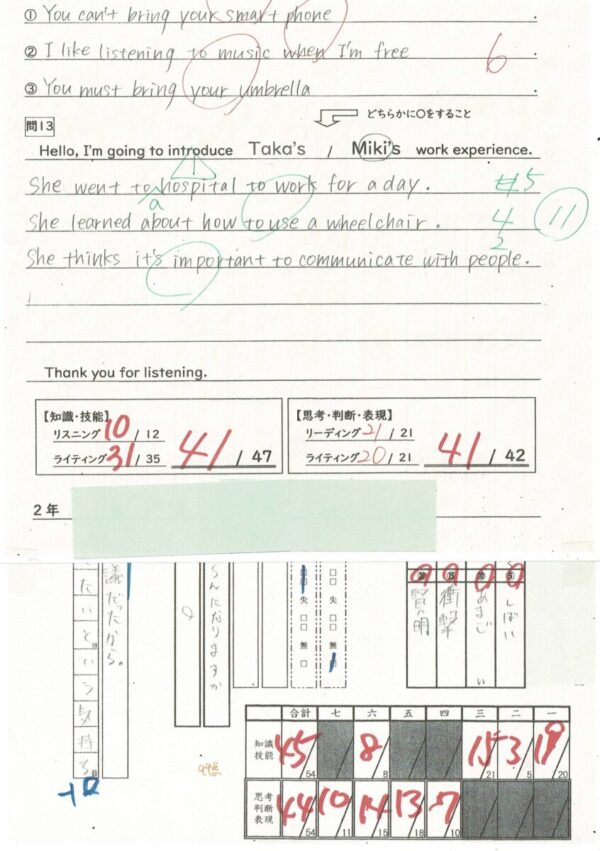 ① You can't bring your smart phone.
② I like listening to music when I'm free.
6
③ You must bring your umbrella.
問13
どちらかに○をすること
Hello, I'm going to introduce Taka's / Miki's work experience.
She went to hospital to work for a day. 5
a
She learned about how to use a wheelchair. 4
11
2
She thinks it's important to communicate with people.
Thank you for listening.
【知識・技能】
リスニング 10 / 12
ライティング 31 / 35
41 / 47
【思考・判断・表現】
リーディング 21 / 21
ライティング 20 / 21
41 / 42
2年
議だったから。
たいという気持ち
らんになりますか
失
無
しばい
あまじ
い
衝撃
賢明
合計 七 六 五 四 三 二 一
知識技能 45/54 8/8 15/21 3/5 19/20
思考判断表現 44/54 10/11 14/15 13/18 7/10